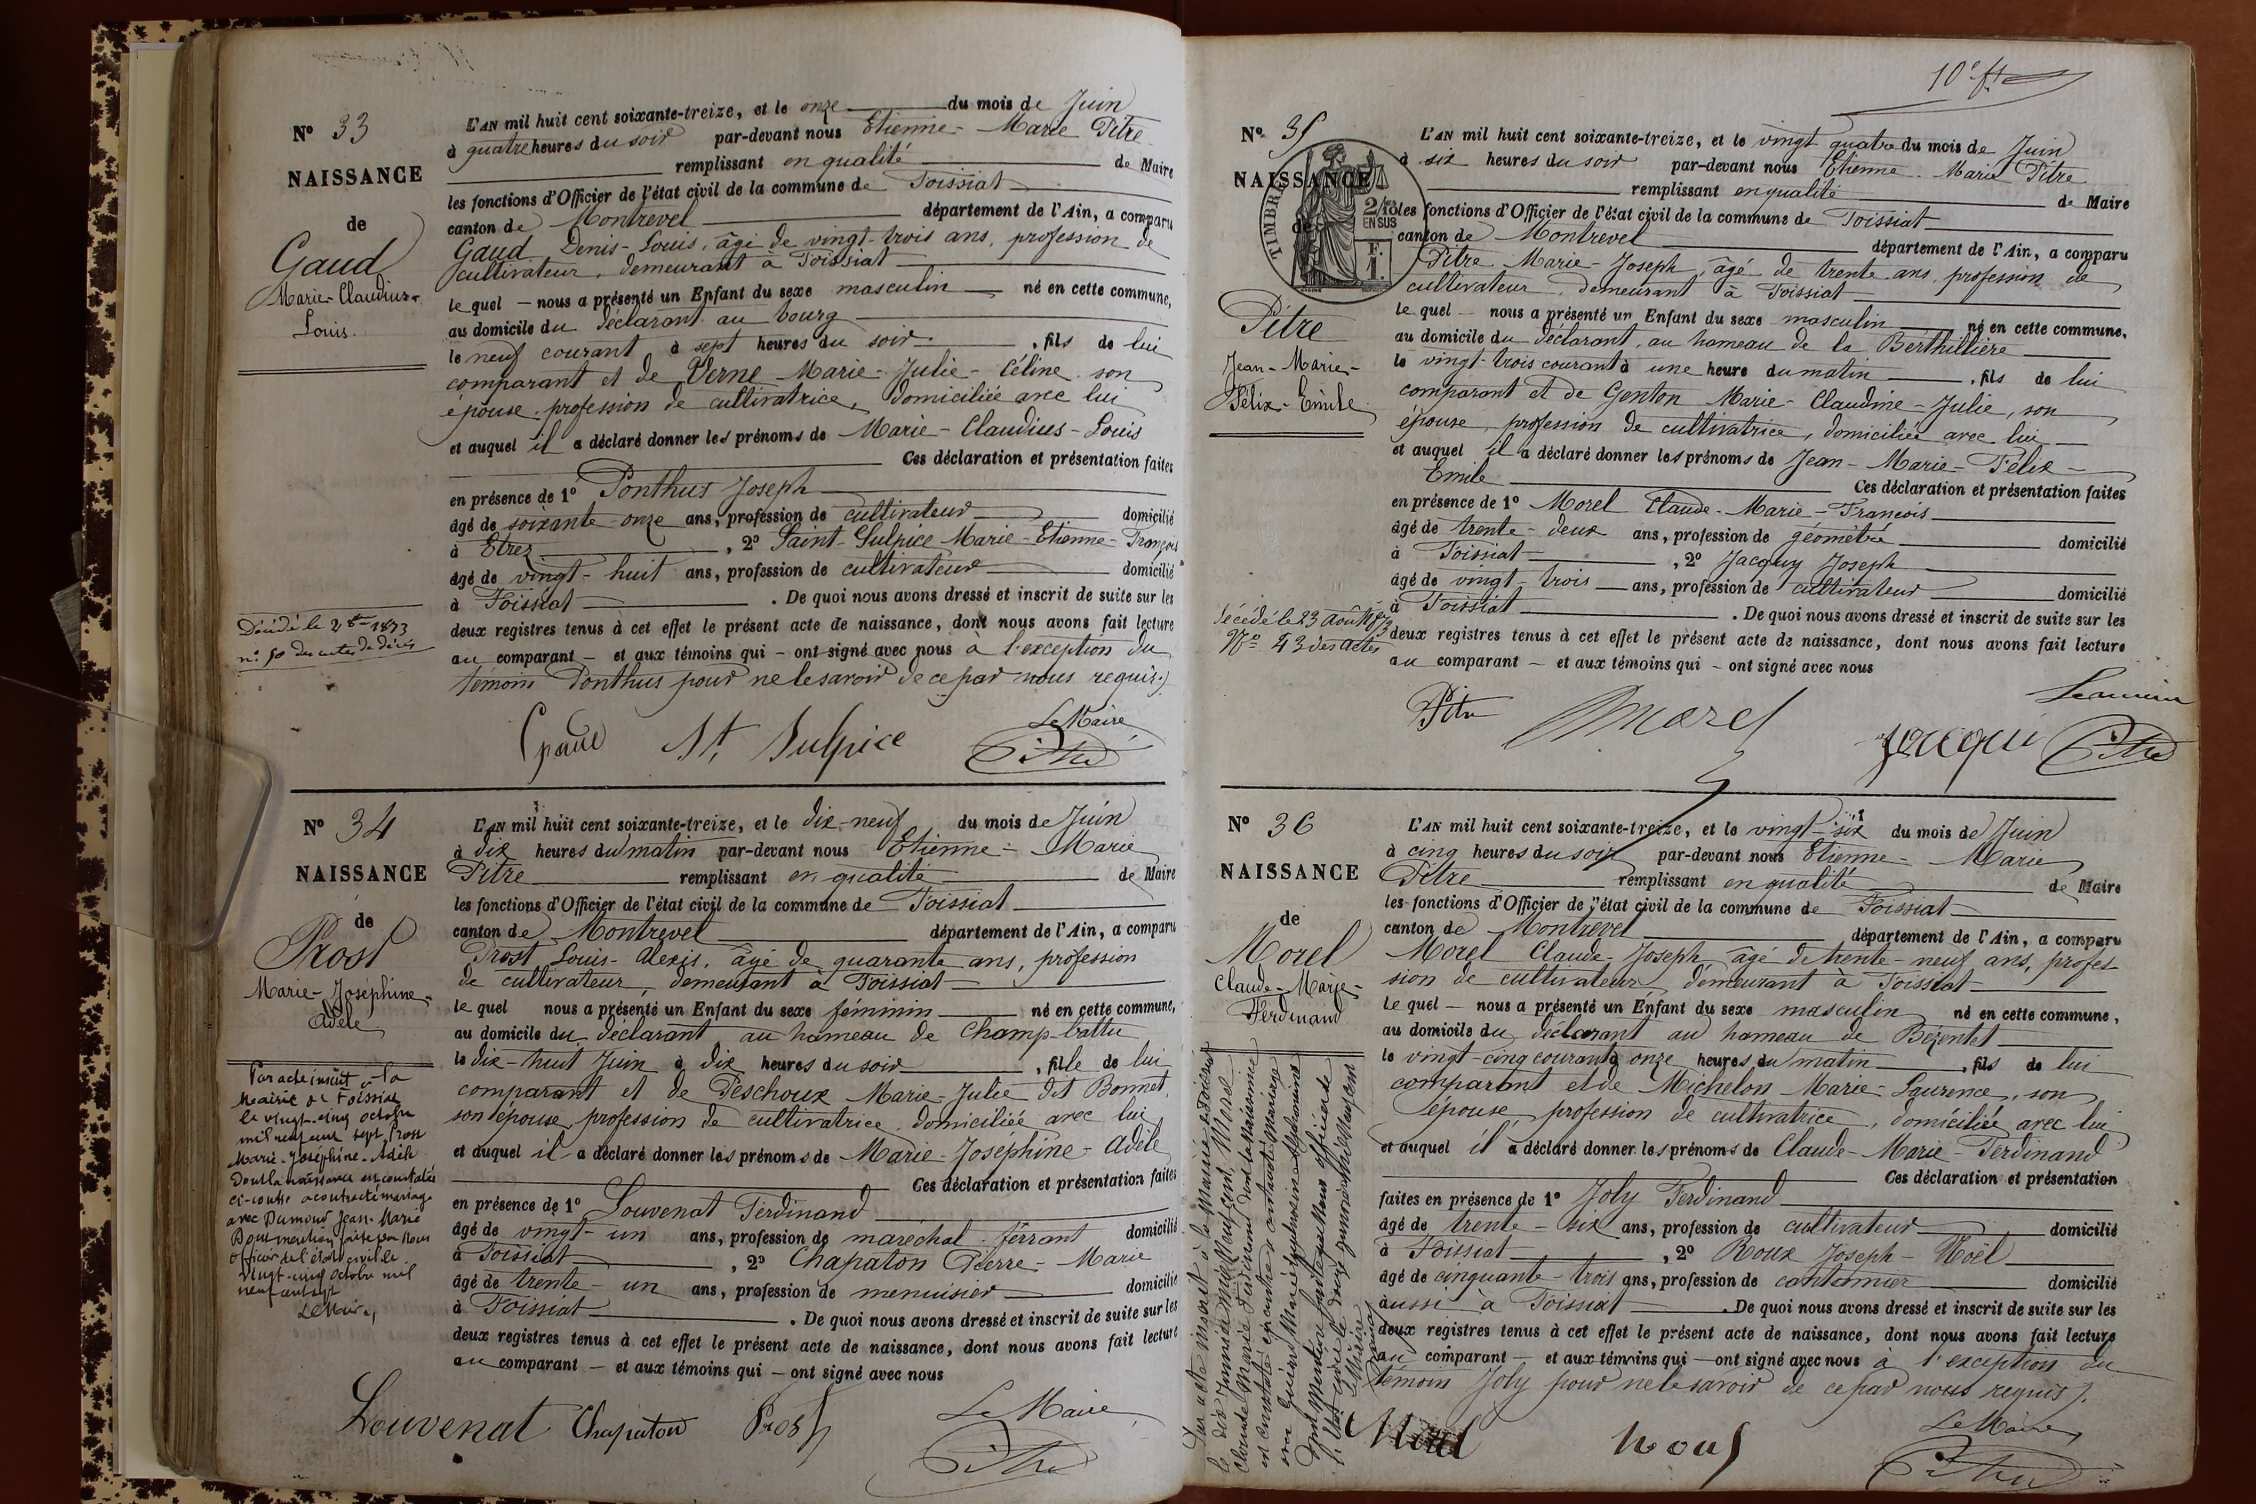 N° 33
NAISSANCE
de
Gaud
Marie-Claudius-
Louis.
Décédé le 2 1873
n° 50 des actes de décès
L'AN mil huit cent soixante-treize, et le onze du mois de Juin
à quatre heures du soir par-devant nous Etienne-Marie Pitre
remplissant en qualité de Maire
les fonctions d'Officier de l'état civil de la commune de Foissiat
canton de Montrevel département de l'Ain, a comparu
Gaud Denis-Louis, âgé de vingt-trois ans, profession de
cultivateur, demeurant à Foissiat
le quel nous a présenté un Enfant du sexe masculin né en cette commune,
au domicile du déclarant au bourg
le neuf courant à sept heures du soir, fils de lui
comparant et de Verne Marie-Julie-Céline son
épouse, profession de cultivatrice, domiciliée avec lui
et auquel il a déclaré donner les prénoms de Marie-Claudius-Louis
Ces déclaration et présentation faites
en présence de 1° Ponthus Joseph
âgé de soixante-onze ans, profession de cultivateur domicilié
à Etrez, 2° Saint-Sulpice Marie-Etienne-François
âgé de vingt-huit ans, profession de cultivateur domicilié
à Foissiat. De quoi nous avons dressé et inscrit de suite sur les
deux registres tenus à cet effet le présent acte de naissance, dont nous avons fait lecture
au comparant et aux témoins qui ont signé avec nous à l'exception du
témoin Ponthus pour ne le savoir de ce par nous requis.
Gaud St Sulpice Le Maire
Pitre
N° 34
NAISSANCE
de
Prost
Marie-Joséphine-
Adèle
Par acte inscrit à la
Mairie de Foissiat
le vingt-cinq octobre
mil neuf cent sept, Prost
Marie-Joséphine-Adèle
dont la naissance est constatée
ci-contre a contracté mariage
avec Dumoud Jean-Marie
Dont mention faite par Nous
Officier de l'état civil le
vingt-cinq octobre mil
neuf cent sept
Le Maire,
L'AN mil huit cent soixante-treize, et le dix-neuf du mois de Juin
à dix heures du matin par-devant nous Etienne-Marie
Pitre remplissant en qualité de Maire
les fonctions d'Officier de l'état civil de la commune de Foissiat
canton de Montrevel département de l'Ain, a comparu
Prost Louis-Alexis, âgé de quarante ans, profession
de cultivateur, demeurant à Foissiat
le quel nous a présenté un Enfant du sexe féminin né en cette commune,
au domicile du déclarant au hameau de Champ-battu
le dix-huit Juin à dix heures du soir, fille de lui
comparant et de Peschoux Marie-Julie dit Bonnet,
son épouse, profession de cultivatrice, domiciliée avec lui
et auquel il a déclaré donner les prénoms de Marie-Joséphine-Adèle
Ces déclaration et présentation faites
en présence de 1° Louvenat Ferdinand
âgé de vingt-un ans, profession de maréchal-ferrant domicilié
à Foissiat, 2° Chapaton Pierre-Marie
âgé de trente-un ans, profession de menuisier domicilié
à Foissiat. De quoi nous avons dressé et inscrit de suite sur les
deux registres tenus à cet effet le présent acte de naissance, dont nous avons fait lecture
au comparant et aux témoins qui ont signé avec nous
Louvenat Chapaton Prost Le Maire
Pitre
10e ft
N° 35
NAISSANCE
de
TIMBRE
2/10es
EN SUS
F.
1.
Pitre
Jean-Marie-
Félix-Emile
Décédé le 23 Août 1873
N° 43 des actes
L'AN mil huit cent soixante-treize, et le vingt quatre du mois de Juin
à six heures du soir par-devant nous Etienne-Marie Pitre
remplissant en qualité de Maire
les fonctions d'Officier de l'état civil de la commune de Foissiat
canton de Montrevel département de l'Ain, a comparu
Pitre Marie-Joseph, âgé de trente ans, profession de
cultivateur, demeurant à Foissiat
le quel nous a présenté un Enfant du sexe masculin né en cette commune,
au domicile du déclarant, au hameau de la Berthillière
le vingt-trois courant à une heure du matin, fils de lui
comparant et de Genton Marie-Claudine-Julie, son
épouse, profession de cultivatrice, domiciliée avec lui
et auquel il a déclaré donner les prénoms de Jean-Marie-Félix-
Emile Ces déclaration et présentation faites
en présence de 1° Morel Claude-Marie-François
âgé de trente-deux ans, profession de géomètre domicilié
à Foissiat, 2° Jacquy Joseph
âgé de vingt-trois ans, profession de cultivateur domicilié
à Foissiat. De quoi nous avons dressé et inscrit de suite sur les
deux registres tenus à cet effet le présent acte de naissance, dont nous avons fait lecture
au comparant et aux témoins qui ont signé avec nous
Pitre Morel Jacqui Le maire
Pitre
N° 36
NAISSANCE
de
Morel
Claude-Marie-
Ferdinand
Par acte inscrit à la Mairie de Foissiat
le dix Janvier mil neuf cent Morel
Claude Marie Ferdinand dont la naissance
est constatée ci-contre a contracté mariage
avec Guérin Marie
Dont Mention faite par Nous officier de
l'état civil le douze Janvier mil neuf cent
Le Maire
L'AN mil huit cent soixante-treize, et le vingt-six du mois de Juin
à cinq heures du soir par-devant nous Etienne-Marie
Pitre remplissant en qualité de Maire
les fonctions d'Officier de l'état civil de la commune de Foissiat
canton de Montrevel département de l'Ain, a comparu
Morel Claude-Joseph, âgé de trente-neuf ans, profes-
sion de cultivateur, demeurant à Foissiat
le quel nous a présenté un Enfant du sexe masculin né en cette commune,
au domicile du déclarant au hameau de Bezentet
le vingt-cinq courant à onze heures du matin, fils de lui
comparant et de Michelon Marie-Laurence, son
épouse, profession de cultivatrice, domiciliée avec lui
et auquel il a déclaré donner les prénoms de Claude-Marie-Ferdinand
Ces déclaration et présentation
faites en présence de 1° Joly Ferdinand
âgé de trente-six ans, profession de cultivateur domicilié
à Foissiat, 2° Roux Joseph-Noël
âgé de cinquante-trois ans, profession de cantonnier domicilié
aussi à Foissiat. De quoi nous avons dressé et inscrit de suite sur les
deux registres tenus à cet effet le présent acte de naissance, dont nous avons fait lecture
au comparant et aux témoins qui ont signé avec nous à l'exception du
témoin Joly pour ne le savoir de ce par nous requis.
Morel Rous Le Maire
Pitre